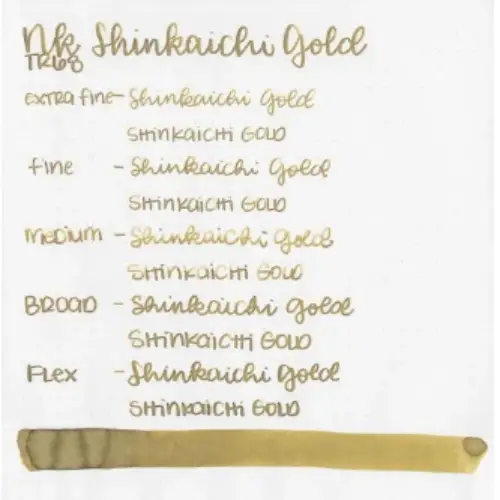 NK Shinkaichi Gold
TR68
Extra Fine - Shinkaichi Gold
Shinkaichi Gold
Fine - Shinkaichi Gold
Shinkaichi Gold
Medium - Shinkaichi Gold
Shinkaichi Gold
Broad - Shinkaichi Gold
Shinkaichi Gold
Flex - Shinkaichi Gold
Shinkaichi Gold